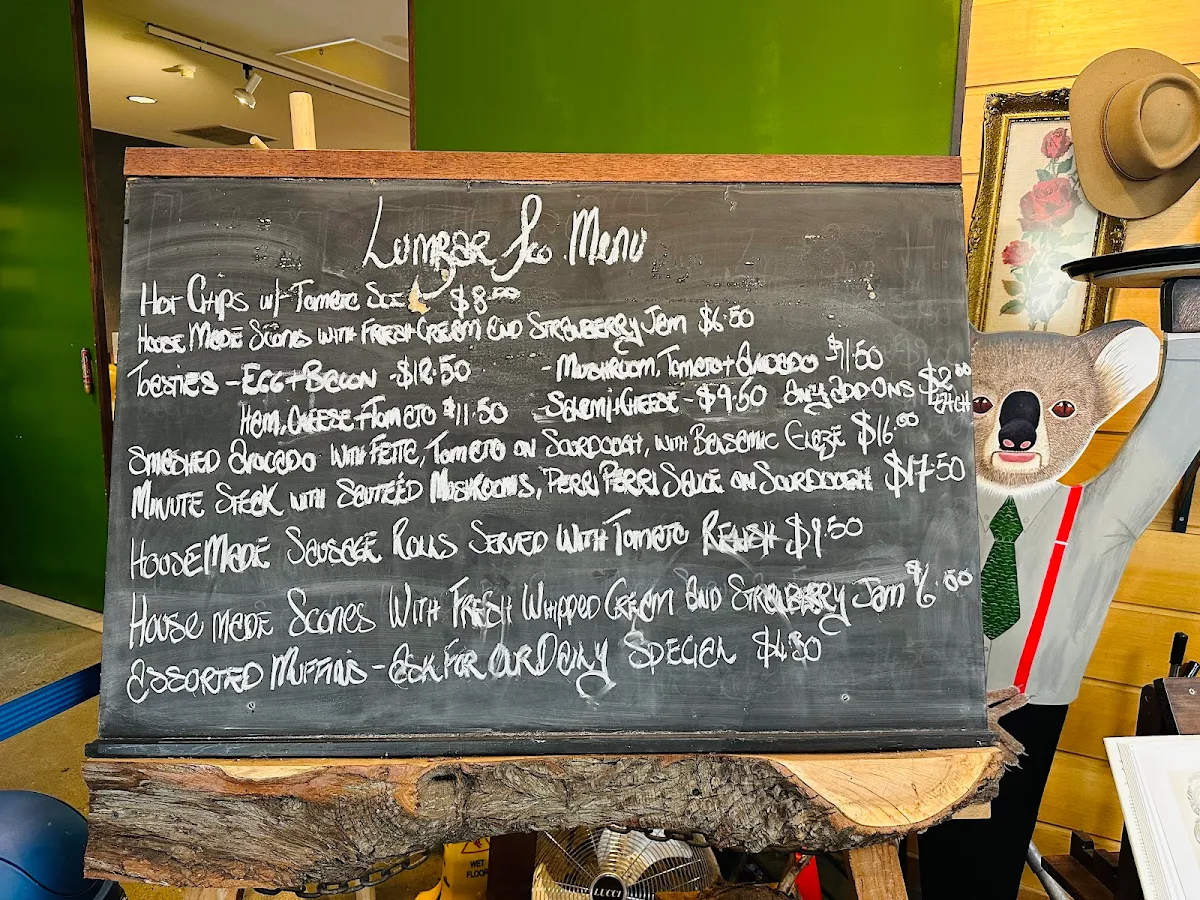 Lumbar & Co Menu
Hot Chips w/ Tomato $8.00
House Made Scones with Fresh Cream and Strawberry Jam $6.50
Toasties - Egg + Bacon - $12.50 - Mushroom, Tomato + Avocado $11.50
Ham, Cheese + Tomato $11.50 Salami + Cheese - $9.50 Any add-ons $2.00 each
Smashed Avocado with Feta, Tomato on Sourdough, with Balsamic Glaze $16.00
Minute Steak with Sauteéd Mushrooms, Perri Perri Sauce on Sourdough $17.50
House Made Sausage Rolls Served With Tomato Relish $9.50
House made Scones With Fresh Whipped Cream and Strawberry Jam $6.50
Assorted Muffins - Ask For Our Daily Special $4.50
WET
FLOOR
LUCCI